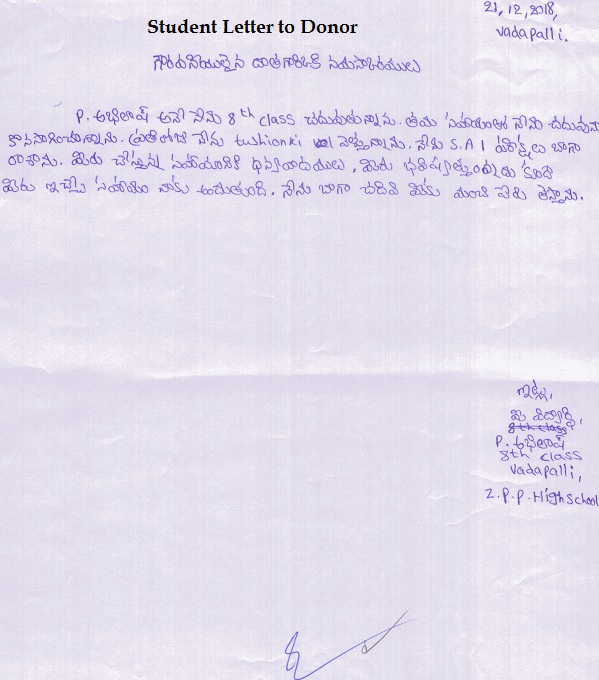 21, 12, 2018,
Student Letter to Donor
Vadapalli.
గౌరవనీయులైన దాతగారికి నమస్కారములు
P. అభిలాష్ అనే నేను 8th class చదువుతున్నాను. తమ సహాయంతో నేను చదువును
కొనసాగించుచున్నాను. ప్రతిరోజు నేను tushionki వెళ్తున్నాను. నేను S.A 1 పరీక్షలు బాగా
రాశాను. మీరు చేస్తున్న సహాయానికి ధన్యవాదములు. మీరు భవిష్యత్తులో కూడా
మీరు ఇచ్చే సహాయం నాకు అందుతుంది. నేను బాగా చదివి మీకు మంచి పేరు తెస్తాను.
ఇట్లు,
మీ విద్యార్థి,
8th class
P. అభిలాష్
8th class
Vadapalli,
Z.P.P. High School